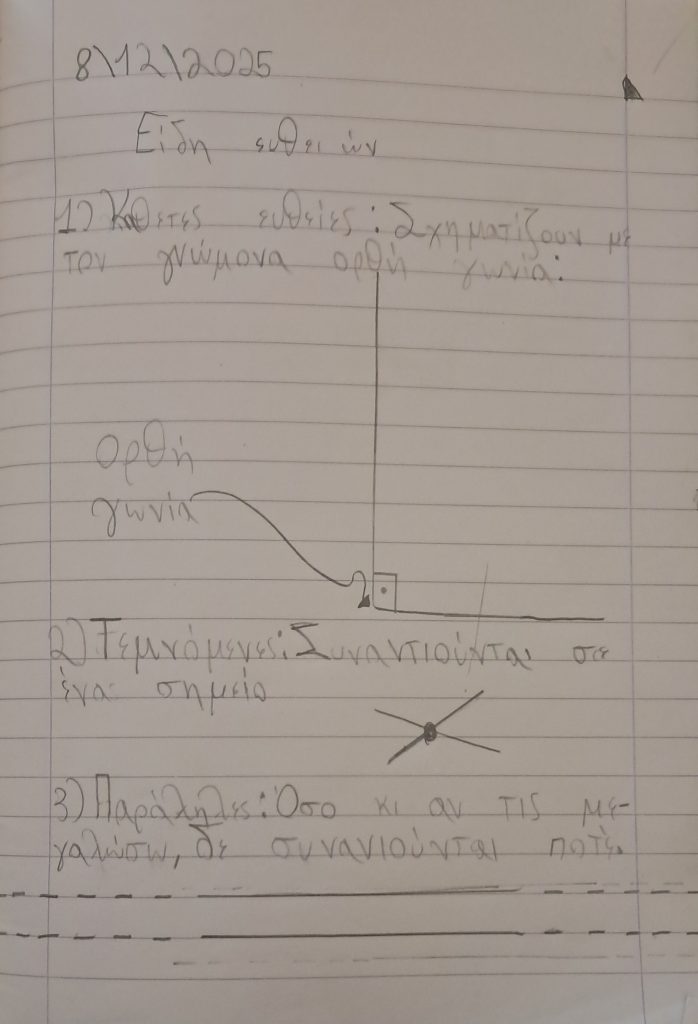 8\12\2025
Είδη ευθειών
1) Κάθετες ευθείες: Σχηματίζουν με
τον γνώμονα ορθή γωνία:
Ορθή
γωνία
2) Τεμνόμενες: Συναντιούνται σε
ένα σημείο
3) Παράληλες: Όσο κι αν τις με-
γαλώσω, δε συνανιούνται ποτέ.